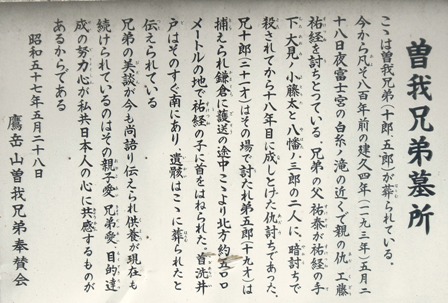 曽我兄弟墓所
ここは曽我兄弟(十郎 五郎)が葬られている。
今から凡そ八百年前の建久四年(一一九三年)五月二
十八日夜富士宮の白糸ノ滝の近くで親の仇 工藤
祐経を討ちとっている 兄弟の父 祐泰が祐経の手
下大見ノ小藤太と八幡ノ三郎の二人に、暗討ちで
殺されてから十八年目に成しとげた仇討ちであった、
兄十郎(二十二才)はその場で討たれ弟五郎(十九才)は
捕えられ鎌倉に護送の途中ここより北方約五〇〇
メートルの地で祐経の子に首をはねられた、首洗井
戸はそのすぐ南にあり、遺骸はここに葬られたと
伝えられている
兄弟の美談が今も尚語り伝えられ供養が現在も
続けられているのはその親子愛 兄弟愛 目的達
成の努力心が私共日本人の心に共感するものが
あるからである
昭和五十七年五月二十八日
鷹岳山曽我兄弟奉賛会